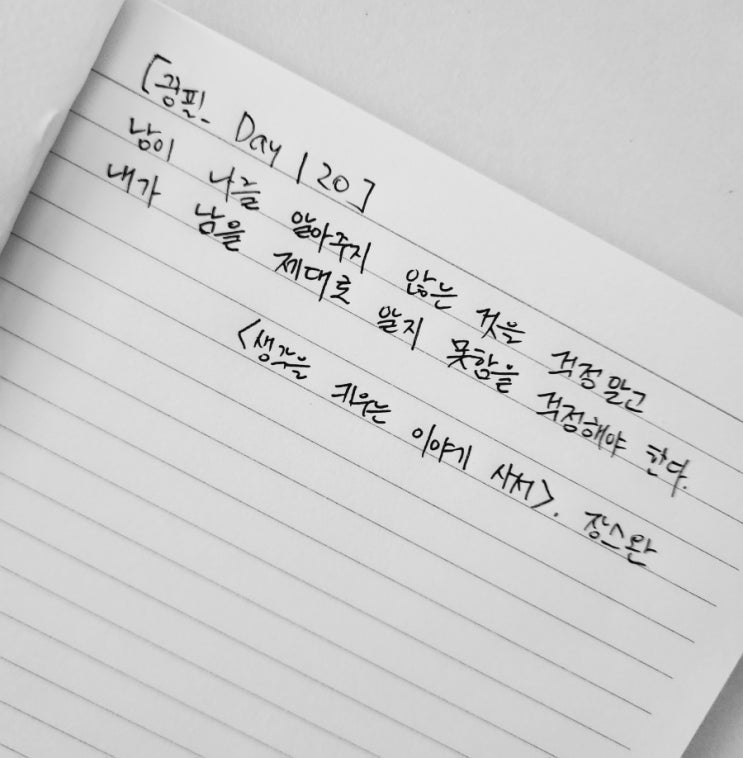 [공필. Day 120]
남이 나를 알아주지 않는 것을 걱정 말고
내가 남을 제대로 알지 못함을 걱정해야 한다.
<생각을 키우는 이야기 사서>. 장스완